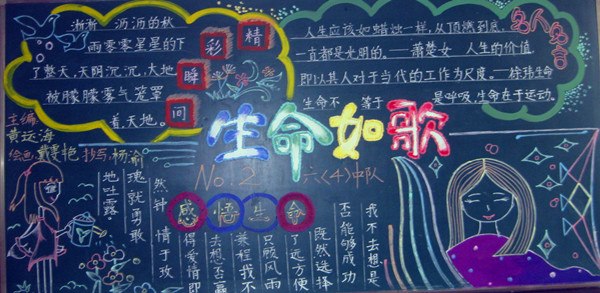 淅淅 沥沥的秋
雨零零星星的下
了整天,天阴沉沉,大地
被朦朦雾气笼罩
着,天地。
精彩瞬间
人生应该如蜡烛一样,从顶燃到底,
一直都是光明的。——萧楚女 人生的价值,
即以其人对于当代的工作为尺度。——徐玮生命
生命不 等于 是呼吸,生命在于运动。
名人名言
主编:
黄运海
绘画 书写 杨渝
生命如歌
No 2 六〈4〉中队
感悟生命
我不去想是
否能够成功
既然选择
了远方便
只顾风雨
兼程我不
去想否赢
得爱情即
然钟 情于玫
瑰就勇敢
地吐露